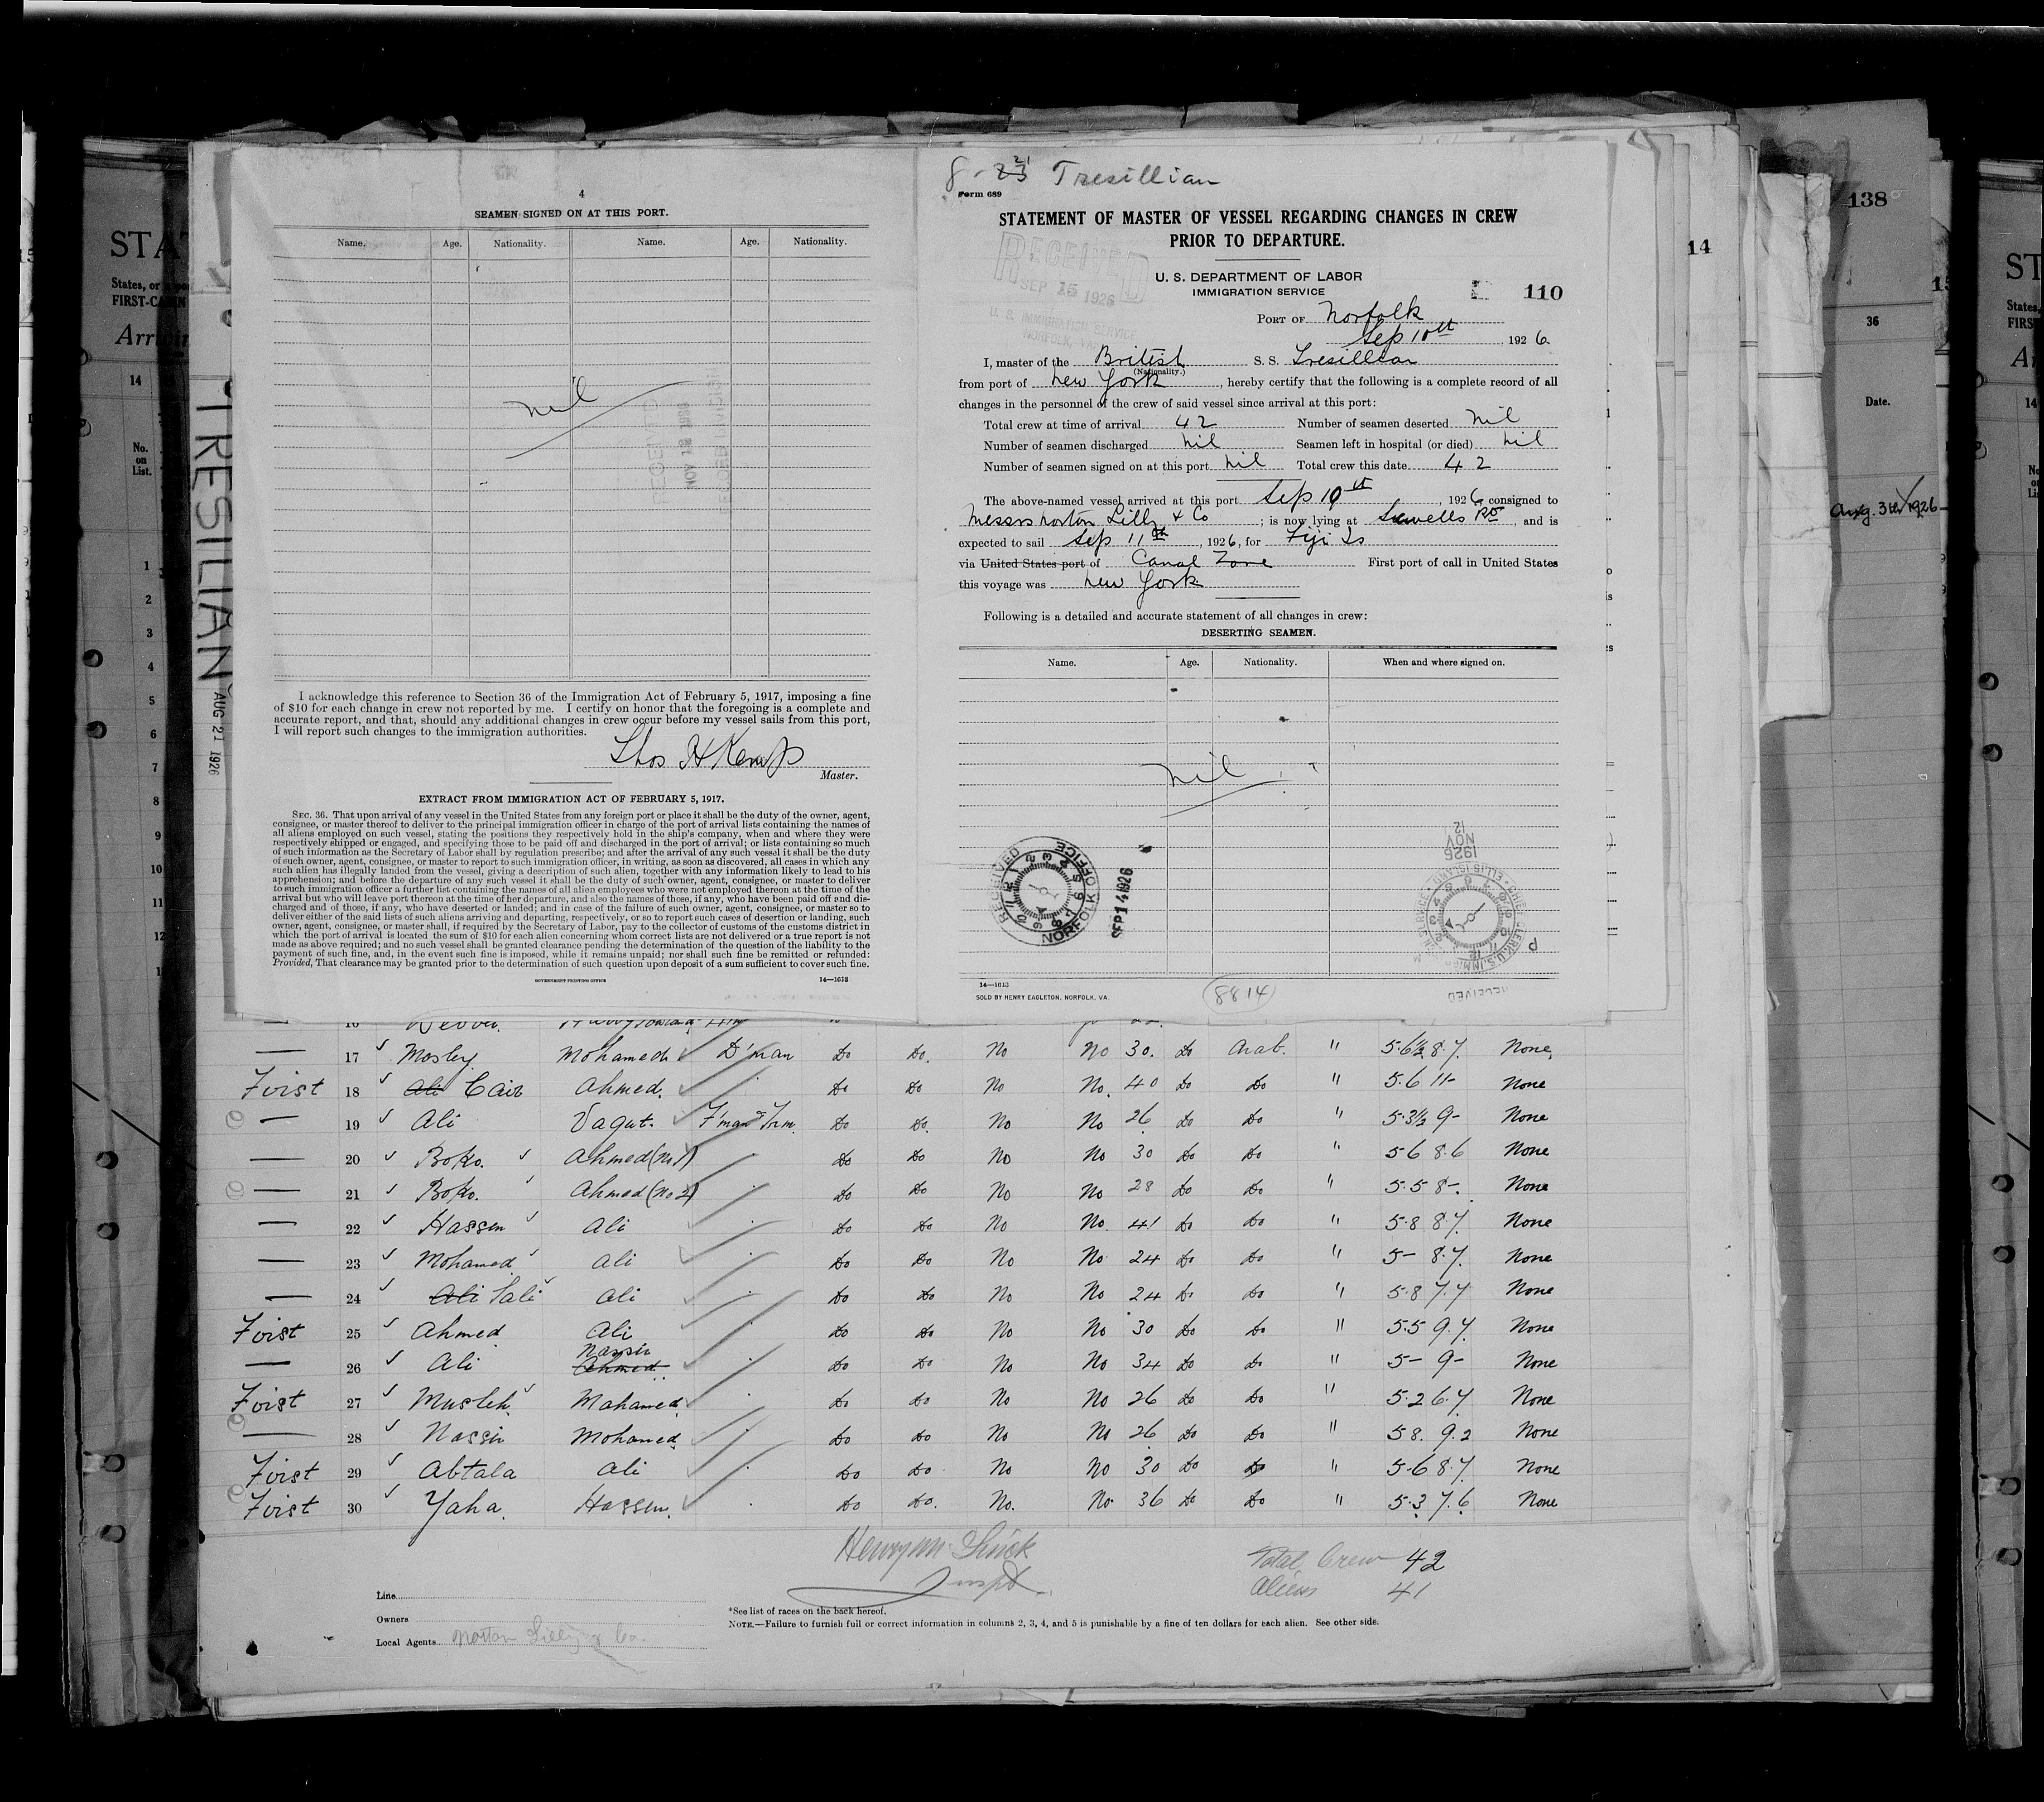 4
SEAMEN SIGNED ON AT THIS PORT.
Name. Age. Nationality. Name. Age. Nationality.
nil
I acknowledge this reference to Section 36 of the Immigration Act of February 5, 1917, imposing a fine
of $10 for each change in crew not reported by me. I certify on honor that the foregoing is a complete and
accurate report, and that, should any additional changes in crew occur before my vessel sails from this port,
I will report such changes to the immigration authorities.
Thos H Kemp
Master.
EXTRACT FROM IMMIGRATION ACT OF FEBRUARY 5, 1917.
SEC. 36. That upon arrival of any vessel in the United States from any foreign port or place it shall be the duty of the owner, agent,
consignee, or master thereof to deliver to the principal immigration officer in charge of the port of arrival lists containing the names of
all aliens employed on such vessel, stating the positions they respectively hold in the ship's company, when and where they were
respectively shipped or engaged, and specifying those to be paid off and discharged in the port of arrival; or lists containing so much
of such information as the Secretary of Labor shall by regulation prescribe; and after the arrival of any such vessel it shall be the duty
of such owner, agent, consignee, or master to report to such immigration officer, in writing, as soon as discovered, all cases in which any
such alien has illegally landed from the vessel, giving a description of such alien, together with any information likely to lead to his
apprehension; and before the departure of any such vessel it shall be the duty of such owner, agent, consignee, or master to deliver
to such immigration officer a further list containing the names of all alien employees who were not employed thereon at the time of the
arrival but who will leave port thereon at the time of her departure, and also the names of those, if any, who have been paid off and dis-
charged and of those, if any, who have deserted or landed; and in case of the failure of such owner, agent, consignee, or master so to
deliver either of the said lists of such aliens arriving and departing, respectively, or so to report such cases of desertion or landing, such
owner, agent, consignee, or master shall, if required by the Secretary of Labor, pay to the collector of customs of the customs district in
which the port of arrival is located the sum of $10 for each alien concerning whom correct lists are not delivered or a true report is not
made as above required; and no such vessel shall be granted clearance pending the determination of the question of the liability to the
payment of such fine, and, in the event such fine is imposed, while it remains unpaid; nor shall such fine be remitted or refunded:
Provided, That clearance may be granted prior to the determination of such question upon deposit of a sum sufficient to cover such fine.
GOVERNMENT PRINTING OFFICE 14—1613
8-23 21 Tresillian
Form 689
STATEMENT OF MASTER OF VESSEL REGARDING CHANGES IN CREW
PRIOR TO DEPARTURE.
RECEIVED
SEP 15 1926
U. S. IMMIGRATION SERVICE
NORFOLK, VA.
U. S. DEPARTMENT OF LABOR
IMMIGRATION SERVICE
110
PORT OF Norfolk
Sep 10th 1926.
I, master of the British S. S. Tresillian
(Nationality.)
from port of New York, hereby certify that the following is a complete record of all
changes in the personnel of the crew of said vessel since arrival at this port:
Total crew at time of arrival 42 Number of seamen deserted nil
Number of seamen discharged nil Seamen left in hospital (or died) nil
Number of seamen signed on at this port nil Total crew this date 42
The above-named vessel arrived at this port Sep 10th, 1926 consigned to
Messrs Norton Lilly & Co; is now lying at Sewells Pt, and is
expected to sail Sep 11th, 1926, for Fiji Is
via United States port of Canal Zone First port of call in United States
this voyage was New York
Following is a detailed and accurate statement of all changes in crew:
DESERTING SEAMEN.
Name. Age. Nationality. When and where signed on.
nil
RECEIVED NORFOLK OFFICE
SEP 14 1926
1926 NOV 12
14—1613
SOLD BY HENRY EAGLETON, NORFOLK, VA.
8814
TRESILIAN
AUG 21 1926
— 17 Mosley Mohamed D'man Do Do. No No 30. Do Arab. " 5·6½ 8·7. None,
First 18 Ali Cair Ahmed. Do Do No No. 40 Do Do " 5·6 11- None
— 19 Ali Vagut. F'man & Trm. Do Do. No No 26 Do Do " 5·3½ 9- None
— 20 Boko. Ahmed (No 1) Do Do No No 30 Do Do " 5 6 8·6 None
— 21 Boko. Ahmed (No 2) Do Do No No 28 Do Do " 5·5 8-. None
— 22 Hassen Ali Do Do No No. 41 Do Do " 5·8 8·7 None
— 23 Mohamed Ali Do Do No No 24 Do Do " 5- 8·7. None
— 24 Ali Sali Ali Do Do No No 24 Do Do " 5·8 7.7 None
First 25 Ahmed Ali Do Do No No 30 Do Do " 5·5 9.7. None
— 26 Ali Nassir Ahmed Do Do No No 34 Do Do " 5- 9- None
First 27 Musleh Mohamed. Do Do No No 26 Do Do " 5·2 6·7 None
— 28 Nassir Mohamed. Do Do No No 26 Do Do " 5 8. 9.2 None
First 29 Abtala Ali Do Do No No 30 Do Do " 5·6 8·7. None
First 30 Yaha. Hassen. Do Do. No. No 36 Do Do " 5·3 7.6 None
Inspt
Total Crew 42
Aliens 41
Line
Owners
Local Agents Norton Lilly & Co.
*See list of races on the back hereof.
NOTE.—Failure to furnish full or correct information in columns 2, 3, 4, and 5 is punishable by a fine of ten dollars for each alien. See other side.
STA
States, or
FIRST-CA
14
No.
on
List.
1
2
3
4
5
6
7
8
9
10
11
12
14
138
36
Date.
Aug. 31st 1926
ST
States,
FIRS
14